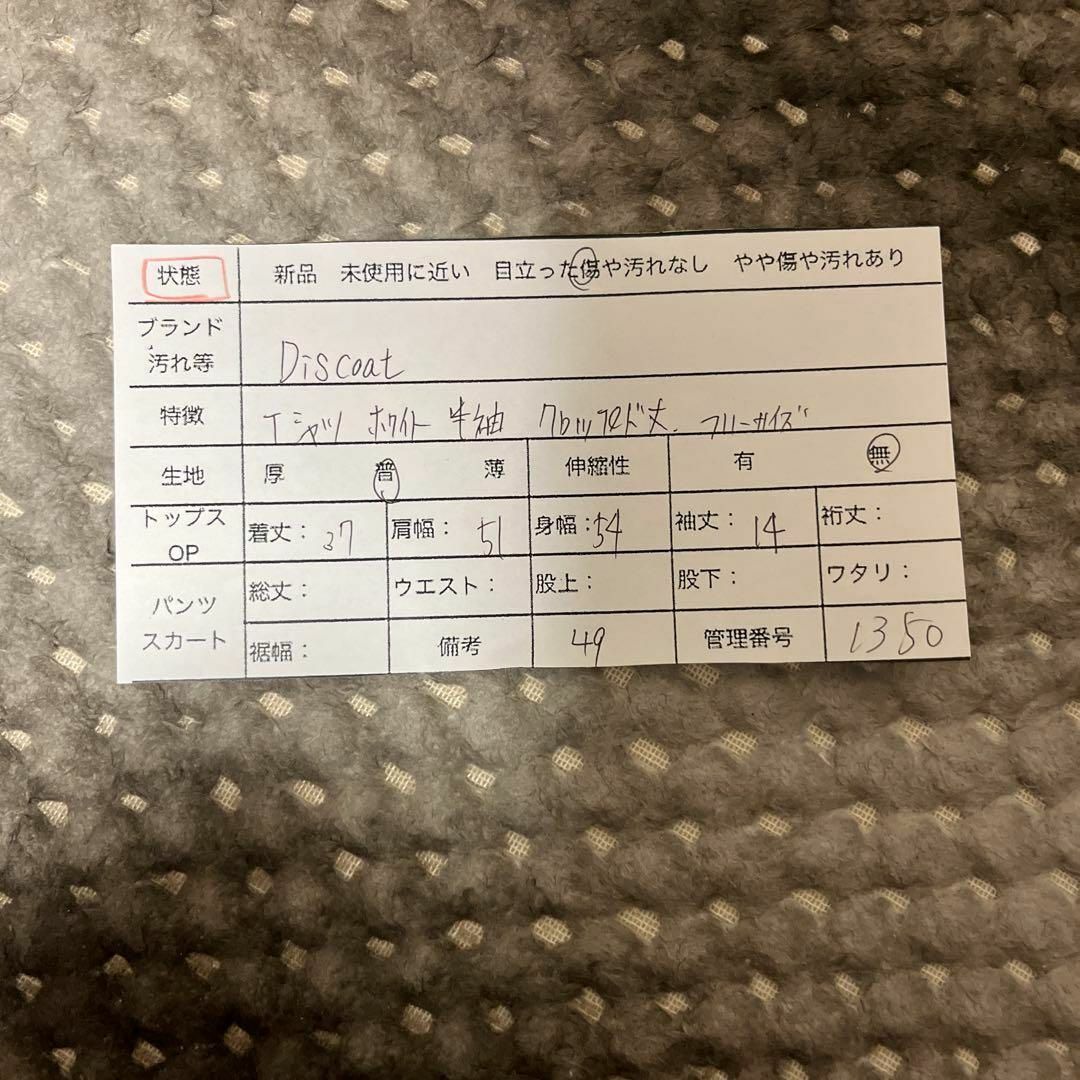 状態 新品 未使用に近い 目立った傷や汚れなし やや傷や汚れあり
ブランド
汚れ等 Discoat
特徴 Tシャツ ホワイト 半袖 クロップド丈. フリーサイズ
生地 厚 普 薄 伸縮性 有 無
トップス
OP 着丈: 37 肩幅: 51 身幅: 54 袖丈: 14 裄丈:
パンツ
スカート 総丈: ウエスト: 股上: 股下: ワタリ:
裾幅: 備考 49 管理番号 1350